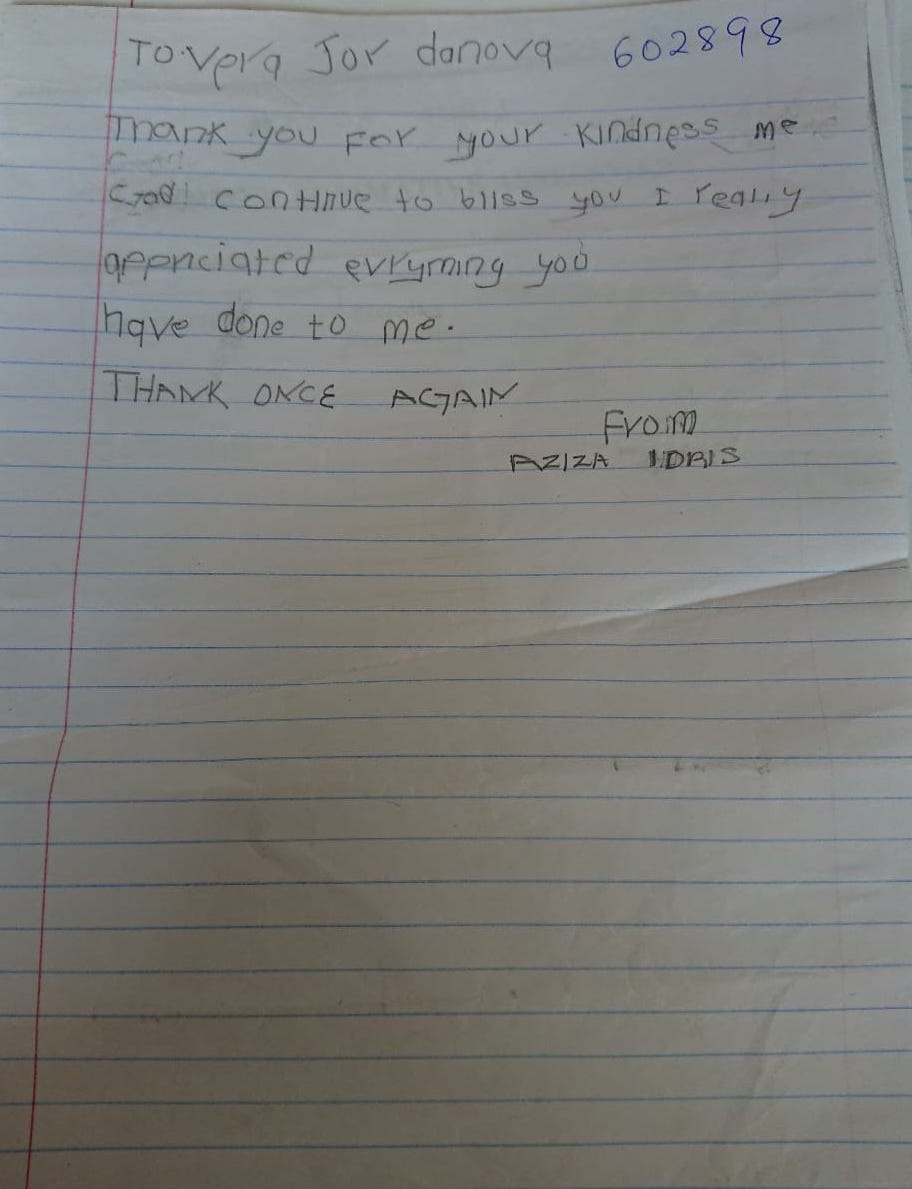 To Vera Jor danova 602898
Thank you For your kindness me
God continue to bliss you I really
appriciated evryming you
have done to me.
THANK ONCE AGAIN
From
AZIZA IDRIS